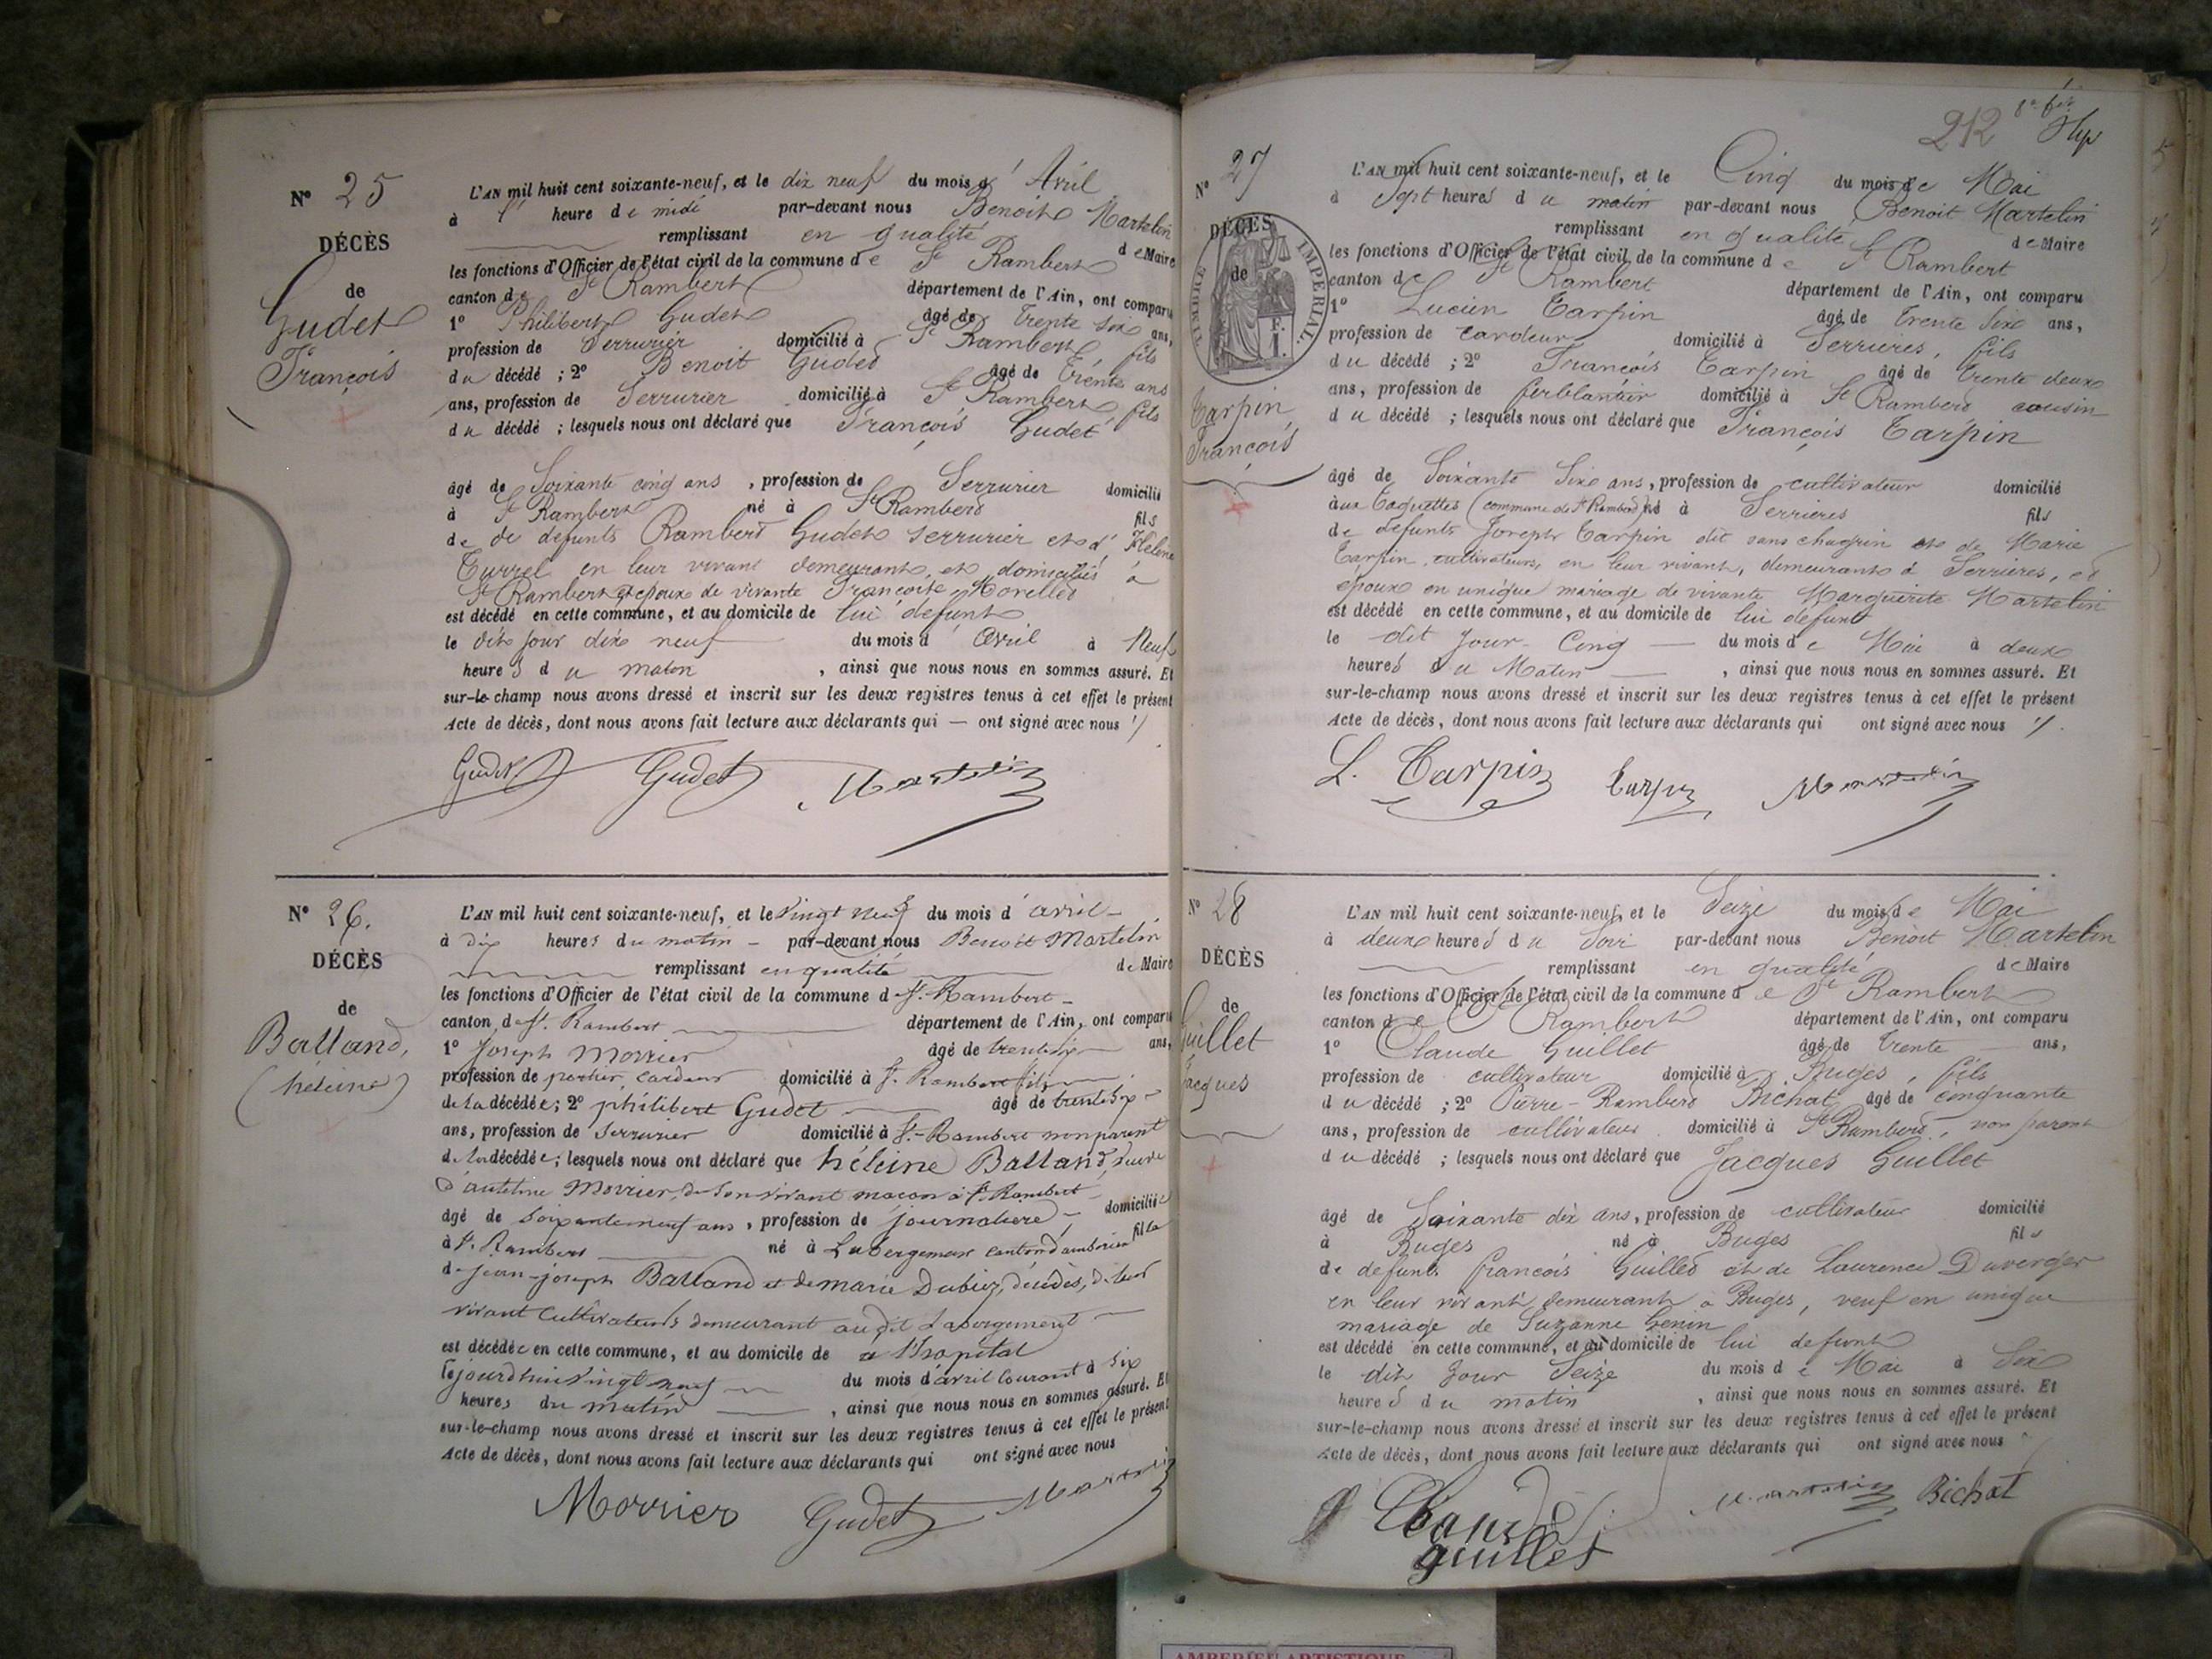 N° 25
DÉCÈS
de
Gudet
François
L'AN mil huit cent soixante-neuf, et le dix neuf du mois d' Avril
à l' heure de midi par-devant nous Benoit Martelin
remplissant en qualité de Maire
les fonctions d'Officier de l'état civil de la commune de St Rambert
canton de St Rambert département de l'Ain, ont comparu
1° Philibert Gudet âgé de trente six ans,
profession de Serrurier domicilié à St Rambert, fils
du décédé ; 2° Benoit Gudet âgé de trente ans
ans, profession de Serrurier domicilié à St Rambert, fils
du décédé ; lesquels nous ont déclaré que François Gudet
âgé de Soixante cinq ans , profession de Serrurier domicilié
à St Rambert né à St Rambert fils
de de defunts Rambert Gudet serrurier et d' Helene
Turrel en leur vivant demeurant et domiciliés à
St Rambert et epoux de vivante Françoise Morellet
est décédé en cette commune, et au domicile de lui defunt
le dit jour dix neuf du mois d' Avril à Neuf
heures du maton , ainsi que nous nous en sommes assuré. Et
sur-le-champ nous avons dressé et inscrit sur les deux registres tenus à cet effet le présent
Acte de décès, dont nous avons fait lecture aux déclarants qui — ont signé avec nous
Gudet Gudet Martelin
N° 26.
DÉCÈS
de
Balland,
(héleine)
L'AN mil huit cent soixante-neuf, et le vingt neuf du mois d' avril
à dix heures du matin - par-devant nous Benoit Martelin
remplissant en qualité de Maire
les fonctions d'Officier de l'état civil de la commune d St. Rambert
canton de St. Rambert département de l'Ain, ont comparu
1° Joseph Morrier âgé de trente six ans,
profession de portier, cardeur domicilié à St. Rambert fils
de la décédée; 2° philibert Gudet âgé de trente six
ans, profession de serrurier domicilié à St.-Rambert non parent
de la décédée; lesquels nous ont déclaré que héleine Balland, veuve
d'antelme Morrier, de son vivant maçon à St. Rambert
âgé de soixante neuf ans , profession de journaliere domiciliée
à St. Rambert né à Labergement canton d'amberieu fille
de jean-joseph Balland et de marie Dubiez, décédés, de leur
vivant cultivateurs demeurant au dit Labergement
est décédée en cette commune, et au domicile de a l'hopital
le jourdhui vingt neuf du mois d'avril courant à six
heures du matin , ainsi que nous nous en sommes assuré. Et
sur-le-champ nous avons dressé et inscrit sur les deux registres tenus à cet effet le présent
Acte de décès, dont nous avons fait lecture aux déclarants qui ont signé avec nous
Morrier Gudet Martelin
212
N° 27
DÉCÈS
de
TIMBRE IMPERIAL.
Tarpin
François
L'AN mil huit cent soixante-neuf, et le Cinq du mois de Mai
à Sept heures du matin par-devant nous Benoit Martelin
remplissant en qualité de Maire
les fonctions d'Officier de l'état civil de la commune de St Rambert
canton de St Rambert département de l'Ain, ont comparu
1° Lucien Tarpin âgé de trente Six ans,
profession de cardeur domicilié à Serrieres, fils
du décédé ; 2° François Tarpin âgé de trente deux
ans, profession de ferblantier domicilié à St Rambert cousin
du décédé ; lesquels nous ont déclaré que François Tarpin
âgé de Soixante Six ans, profession de cultivateur domicilié
aux (commune de St Rambert) né à Serrieres fils
de defunts Joseph Tarpin dit sans chagrin et de Marie
Tarpin, cultivateurs, en leur vivant, demeurant à Serrieres, et
époux en unique mariage de vivante Marguerite Martelin
est décédé en cette commune, et au domicile de lui defunt
le dit jour Cinq — du mois de Mai à deux
heures du Matin , ainsi que nous nous en sommes assuré. Et
sur-le-champ nous avons dressé et inscrit sur les deux registres tenus à cet effet le présent
Acte de décès, dont nous avons fait lecture aux déclarants qui ont signé avec nous
L. Tarpin Tarpin Martelin
N° 28
DÉCÈS
de
Guillet
Jacques
L'AN mil huit cent soixante-neuf, et le Seize du mois de Mai
à deux heures du Soir par-devant nous Benoit Martelin
remplissant en qualité de Maire
les fonctions d'Officier de l'état civil de la commune de St Rambert
canton de St Rambert département de l'Ain, ont comparu
1° Claude Guillet âgé de trente ans,
profession de cultivateur domicilié à Buges, fils
du décédé ; 2° Pierre-Rambert Bichat âgé de cinquante
ans, profession de cultivateur domicilié à St Rambert, non parent
du décédé ; lesquels nous ont déclaré que Jacques Guillet
âgé de Soixante dix ans, profession de cultivateur domicilié
à Buges né à Buges fils
de defunts françois Guillet et de Laurence Duverger
en leur vivant demeurant à Buges, veuf en unique
mariage de Suzanne Genin
est décédé en cette commune, et au domicile de lui defunt
le dit jour Seize du mois de Mai à Six
heures du matin , ainsi que nous nous en sommes assuré. Et
sur-le-champ nous avons dressé et inscrit sur les deux registres tenus à cet effet le présent
Acte de décès, dont nous avons fait lecture aux déclarants qui ont signé avec nous
Claude Martelin Bichat
guillet
AMBERIEU ARTISTIQUE